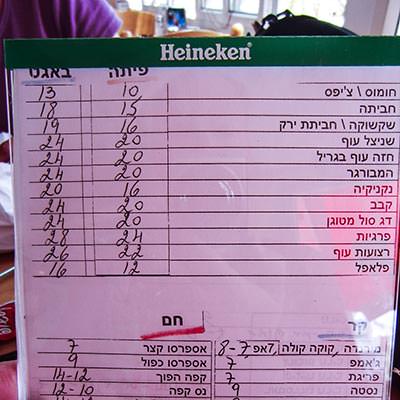 Heineken
פיתה באגט
חומוס \ צ'יפס 10 13
חביתה 15 18
שקשוקה \ חביתת ירק 16 19
שניצל עוף 20 24
חזה עוף בגריל 20 24
המבורגר 20 24
נקניקיה 16 20
קבב 20 24
דג סול מטוגן 20 24
פרגיות 24 28
רצועות עוף 22 26
פלאפל 12 16
קר חם
מירנדה, קוקה קולה, 7אפ 7-8 אספרסו קצר 7
ג'אמפ 7 אספרסו כפול 9
פריגת 7 קפה הפוך 12-14
נסטה 9 נס קפה 10-12